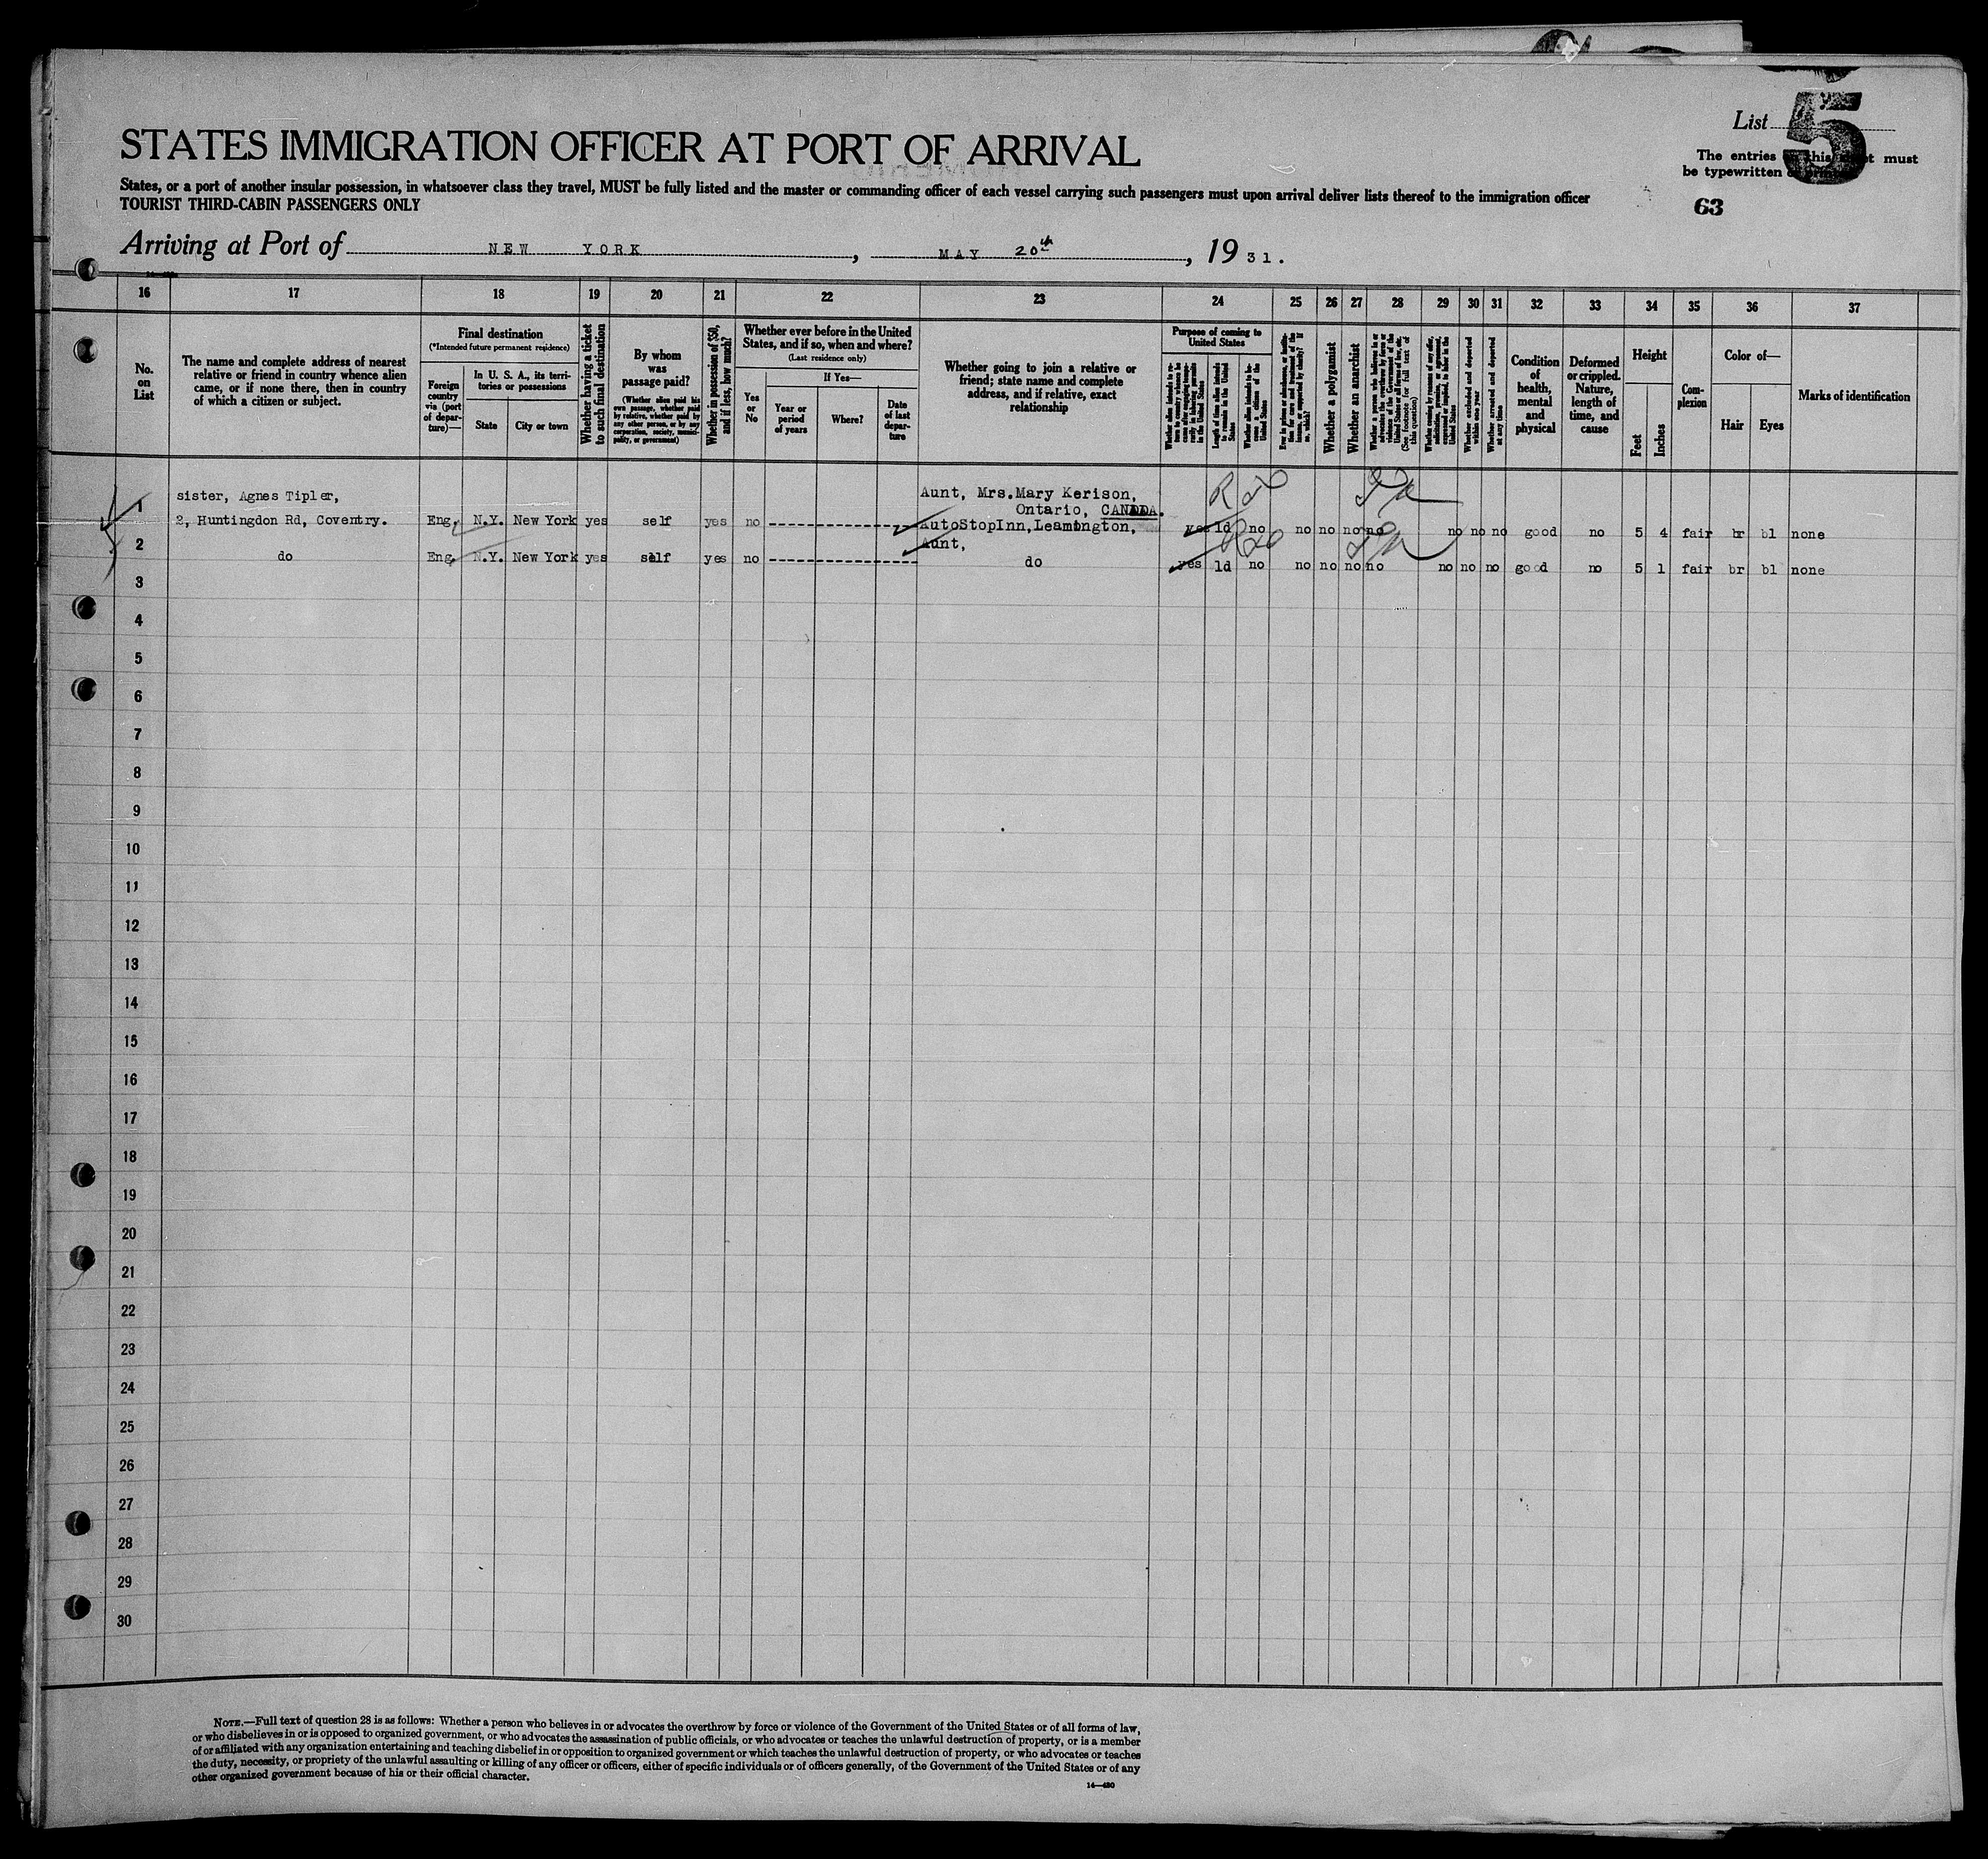 List 5
STATES IMMIGRATION OFFICER AT PORT OF ARRIVAL
The entries this must
be typewritten
States, or a port of another insular possession, in whatsoever class they travel, MUST be fully listed and the master or commanding officer of each vessel carrying such passengers must upon arrival deliver lists thereof to the immigration officer
TOURIST THIRD-CABIN PASSENGERS ONLY
63
Arriving at Port of NEW YORK, MAY 20th, 1931.
16 17 18 19 20 21 22 23 24 25 26 27 28 29 30 31 32 33 34 35 36 37
No. on List
The name and complete address of nearest
relative or friend in country whence alien
came, or if none there, then in country
of which a citizen or subject.
Final destination
(*Intended future permanent residence)
Foreign
country
via (port
of depar-
ture)—
In U. S. A., its terri-
tories or possessions
State
City or town
Whether having a ticket
to such final destination
By whom
was
passage paid?
(Whether alien paid his
own passage, whether paid
by relative, whether paid by
any other person, or by any
corporation, society, munici-
pality, or government)
Whether in possession of $50,
and if less, how much?
Whether ever before in the United
States, and if so, when and where?
(Last residence only)
Yes
or
No
If Yes—
Year or
period
of years
Where?
Date
of last
depar-
ture
Whether going to join a relative or
friend; state name and complete
address, and if relative, exact
relationship
Purpose of coming to
United States
Whether alien intends to re-
turn to country whence he
came after engaging tempo-
rarily in laboring pursuits
in the United States
Length of time alien intends
to remain in the United
States
Whether alien intends to be-
come a citizen of the
United States
Ever in prison or almshouse, or institu-
tion for care and treatment of the
insane, or supported by charity? If
so, which?
Whether a polygamist
Whether an anarchist
Whether a person who believes in or
advocates the overthrow by force or
violence of the Government of the
United States or all forms of law, etc.
(See footnote for full text of
this question)
Whether coming by reason of any offer,
solicitation, promise, or agreement,
expressed or implied, to labor in the
United States
Whether excluded and deported
within one year
Whether arrested and deported
at any time
Condition
of
health,
mental
and
physical
Deformed
or crippled.
Nature,
length of
time, and
cause
Height
Feet
Inches
Com-
plexion
Color of—
Hair
Eyes
Marks of identification
1 sister, Agnes Tipler, Aunt, Mrs.Mary Kerison,
Ontario, CANADA.
2, Huntingdon Rd, Coventry. Eng. N.Y. New York yes self yes no AutoStopInn,Leamington, yes 1d no no no no no no no no good no 5 4 fair br bl none
2 Aunt,
do Eng. N.Y. New York yes self yes no do yes 1d no no no no no no no no good no 5 1 fair br bl none
3
4
5
6
7
8
9
10
11
12
13
14
15
16
17
18
19
20
21
22
23
24
25
26
27
28
29
30
NOTE.—Full text of question 28 is as follows: Whether a person who believes in or advocates the overthrow by force or violence of the Government of the United States or of all forms of law,
or who disbelieves in or is opposed to organized government, or who advocates the assassination of public officials, or who advocates or teaches the unlawful destruction of property, or is a member
of or affiliated with any organization entertaining and teaching disbelief in or opposition to organized government or which teaches the unlawful destruction of property, or who advocates or teaches
the duty, necessity, or propriety of the unlawful assaulting or killing of any officer or officers, either of specific individuals or of officers generally, of the Government of the United States or of any
other organized government because of his or their official character.
14—430